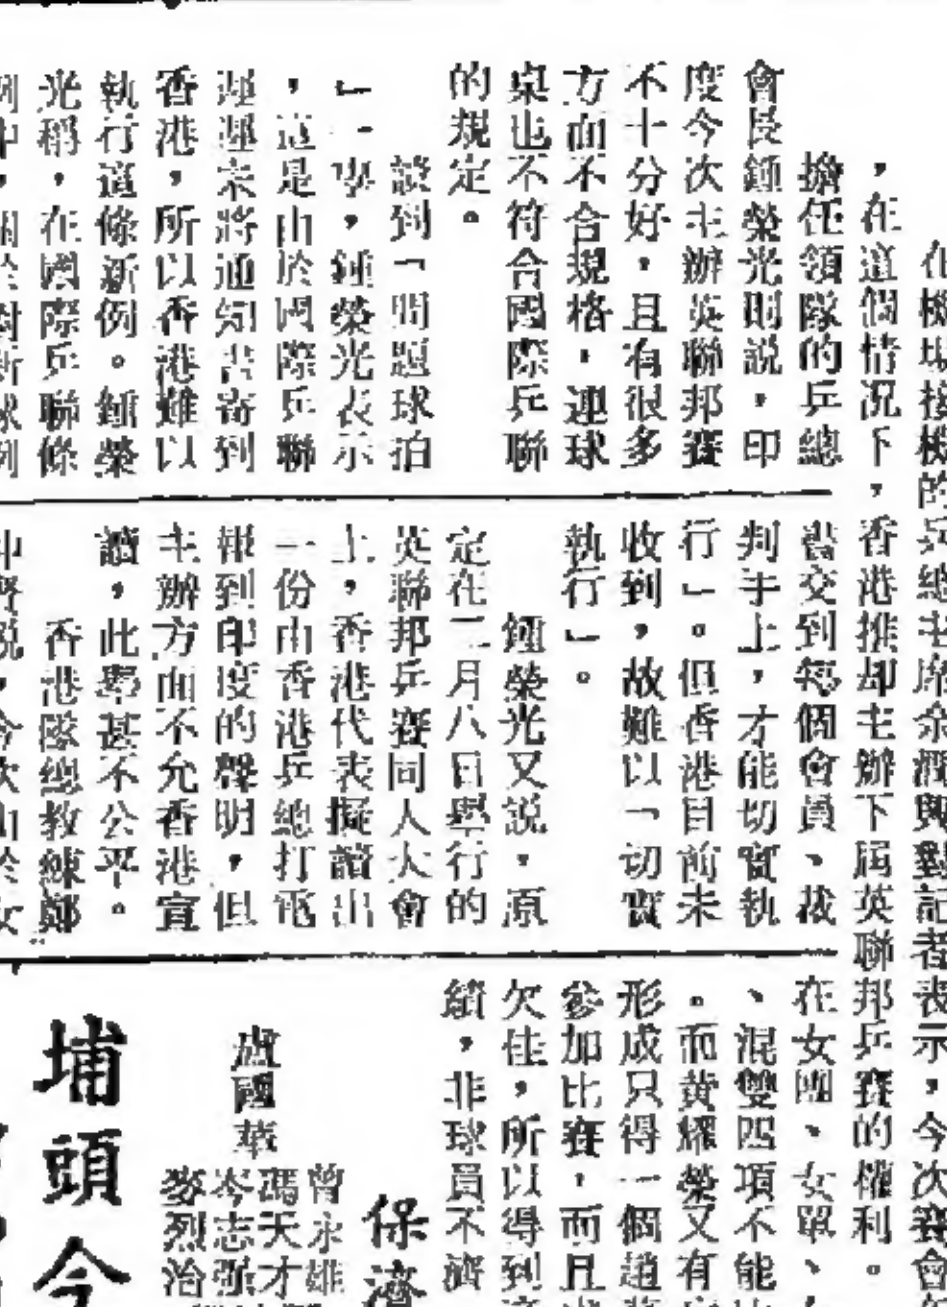 在機場接機的乒總主席余潤興對記者表示，今次賽會
，在這個情况下，香港推却主辦下屆英聯邦乒賽的權利。
擔任領隊的乒總
會長鍾榮光則說，印
度今次主辦英聯邦賽
不十分好，且有很多
方面不合規格，連球
桌也不符合國際乒聯
的規定。
談到「問題球拍
」一事，鍾榮光表示
，這是由於國際乒聯
遲遲未將通知書寄到
香港，所以香港難以
執行這條新例。鍾榮
光稱，在國際乒聯條
例中，關於對新球例
書交到每個會員、裁
判手上，才能切實執
行」。但香港目前未
收到，故難以「切實
執行」。
鍾榮光又說，原
定在二月八日舉行的
英聯邦乒賽同人大會
上，香港代表擬讀出
一份由香港乒總打電
報到印度的聲明，但
主辦方面不允香港宣
讀，此舉甚不公平。
香港隊總教練鄭
在女團、女單、
、混雙四項不能
。而黄耀榮又有
形成只得一個趙
參加比賽，而且
欠佳，所以得到
績，非球員不濟
保濟
曾永雄
馮天才
岑志强
麥烈治
盧國華
埔頭今